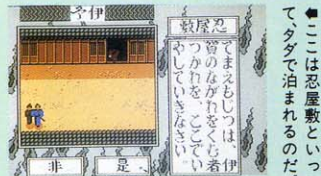 伊予
忍屋敷
てまえもじつは、伊
賀のながれをくむ者
つかれを ここでい
やしていきなさい
是
非
⬅ここは忍屋敷といっ
て、タダで泊まれるのだ。